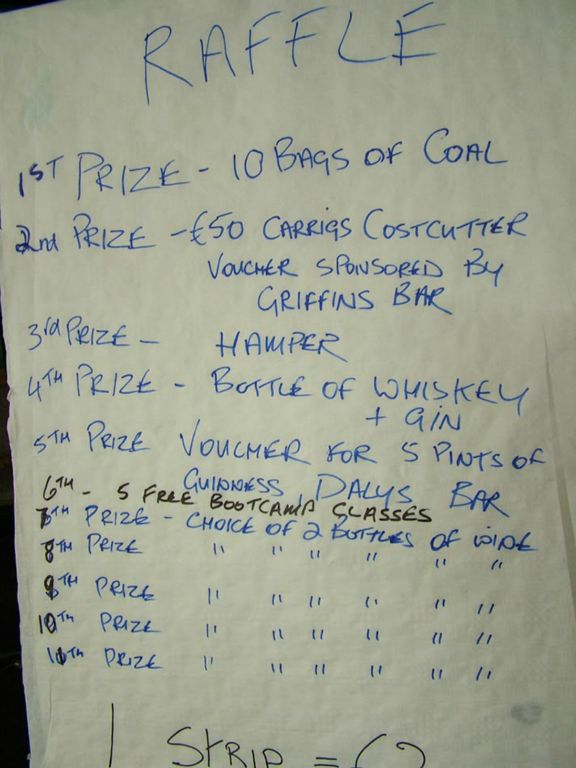 RAFFLE
1ST PRIZE - 10 BAGS OF COAL
2nd PRIZE - €50 CARRIGS COSTCUTTER
VOUCHER SPONSORED BY
GRIFFINS BAR
3rd PRIZE - HAMPER
4TH PRIZE - BOTTLE OF WHISKEY
+ GIN
5TH PRIZE VOUCHER FOR 5 PINTS OF
GUINNESS, DALYS BAR
6TH - 5 FREE BOOTCAMP CLASSES
7TH PRIZE - CHOICE OF 2 BOTTLES OF WINE
8TH PRIZE " " " " " "
9TH PRIZE " " " " " "
10TH PRIZE " " " " " "
11th PRIZE " " " " " "
1 STRIP =